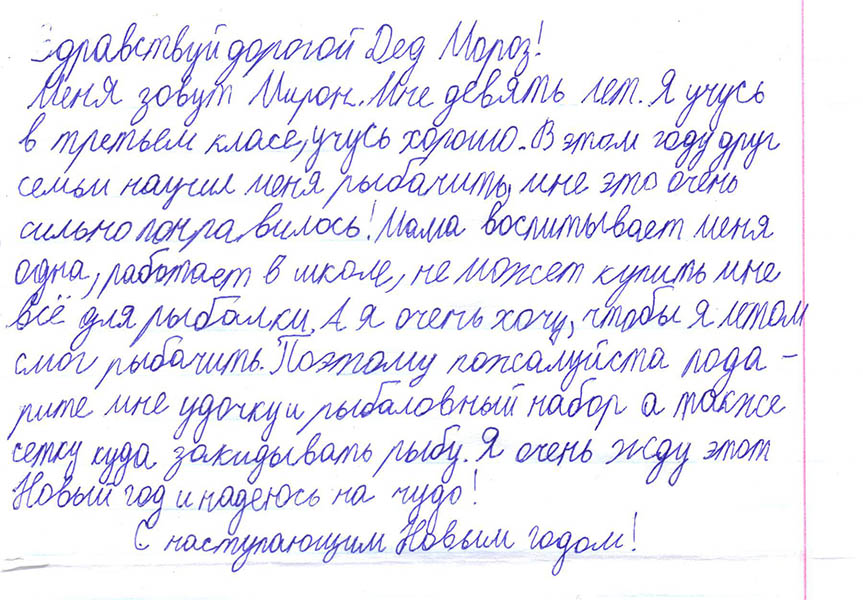 Здравствуй дорогой Дед Мороз!
Меня зовут Мирон. Мне девять лет. Я учусь
в третьем класе, учусь хорошо. В этом году друг
семьи научил меня рыбачить, мне это очень
сильно понравилось! Мама воспитывает меня
одна, работает в школе, не может купить мне
всё для рыбалки. А я очень хочу, чтобы я летом
смог рыбачить. Поэтому пожалуйста пода-
рите мне удочку и рыбаловный набор а также
сетку куда закидывать рыбу. Я очень жду этот
Новый год и надеюсь на чудо!
С наступающим Новым годом!